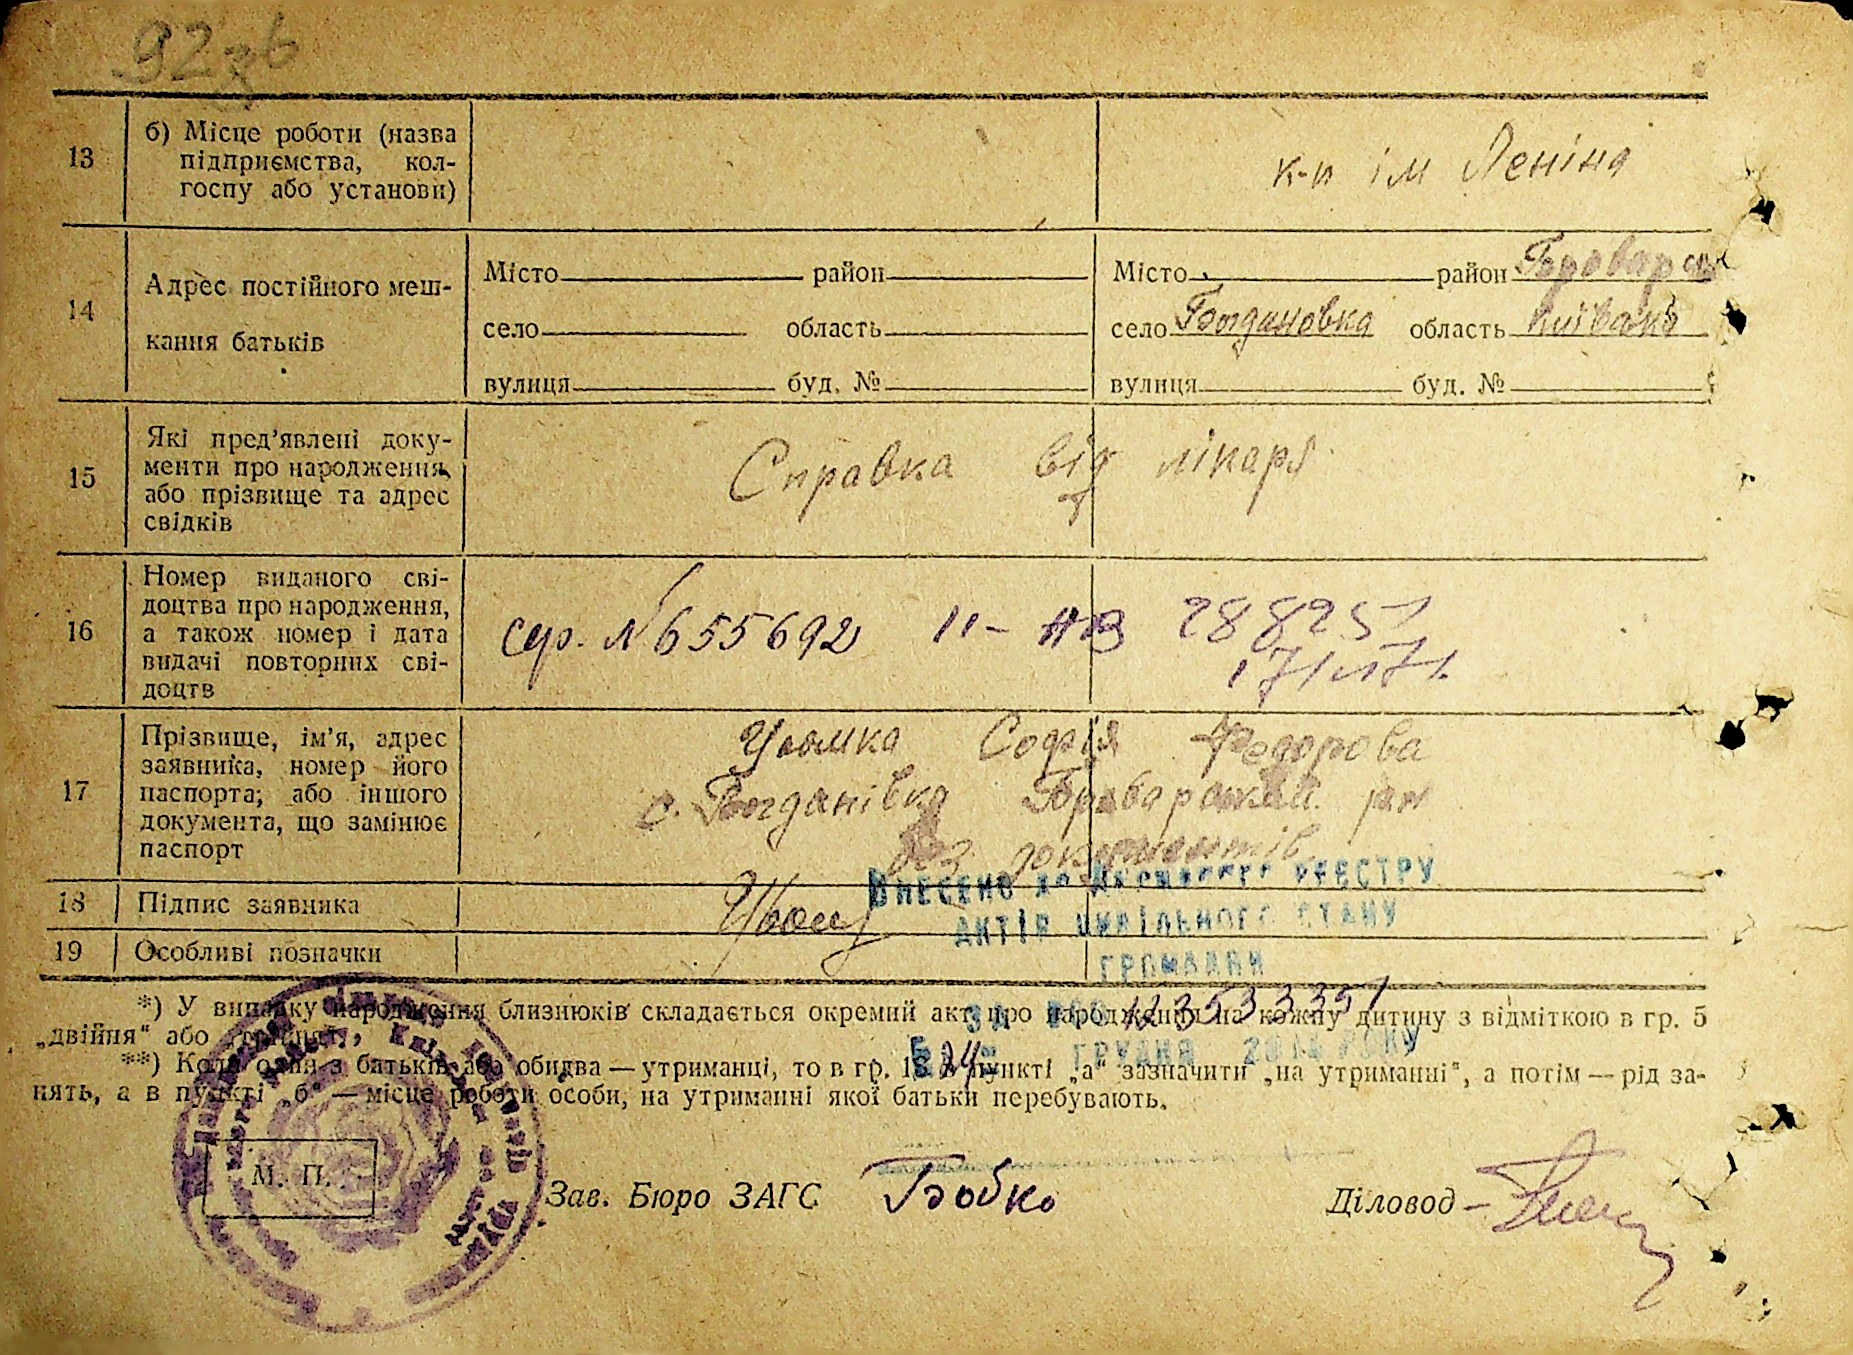 92 зв
13 б) Місце роботи (назва
підприємства, кол-
госпу або установи)
к-п ім Леніна
14 Адрес постійного меш-
кання батьків
Місто район
село область
вулиця буд. №
Місто район Броварск
село Богдановка область Київська
вулиця буд. №
15 Які пред’явлені доку-
менти про народження
або прізвище та адрес
свідків
Справка від лікаря
16 Номер виданого сві-
доцтва про народження,
а також номер і дата
видачі повторних сві-
доцтв
сер. № 655692 288251
17 Прізвище, ім’я, адрес
заявника, номер його
паспорта; або іншого
документа, що замінює
паспорт
Софія Федорова
с. Богданівка
без документів
18 Підпис заявника
19 Особливі позначки
ВНЕСЕНО до Державного РЕЄСТРУ
АКТІВ ЦИВІЛЬНОГО СТАНУ
ГРОМАДЯН
ЗА
ГРУДНЯ РОКУ
*) У випадку народження близнюків складається окремий акт про народження на кожну дитину з відміткою в гр. 5
„двійня“ або „трійня“.
**) Коли один з батьків або обидва — утриманці, то в гр. 13 в пункті „а“ зазначити „на утриманні“, а потім — рід за-
нять, а в пункті „б“ — місце роботи особи, на утриманні якої батьки перебувають.
М. П.
Зав. Бюро ЗАГС Бобко
Діловод